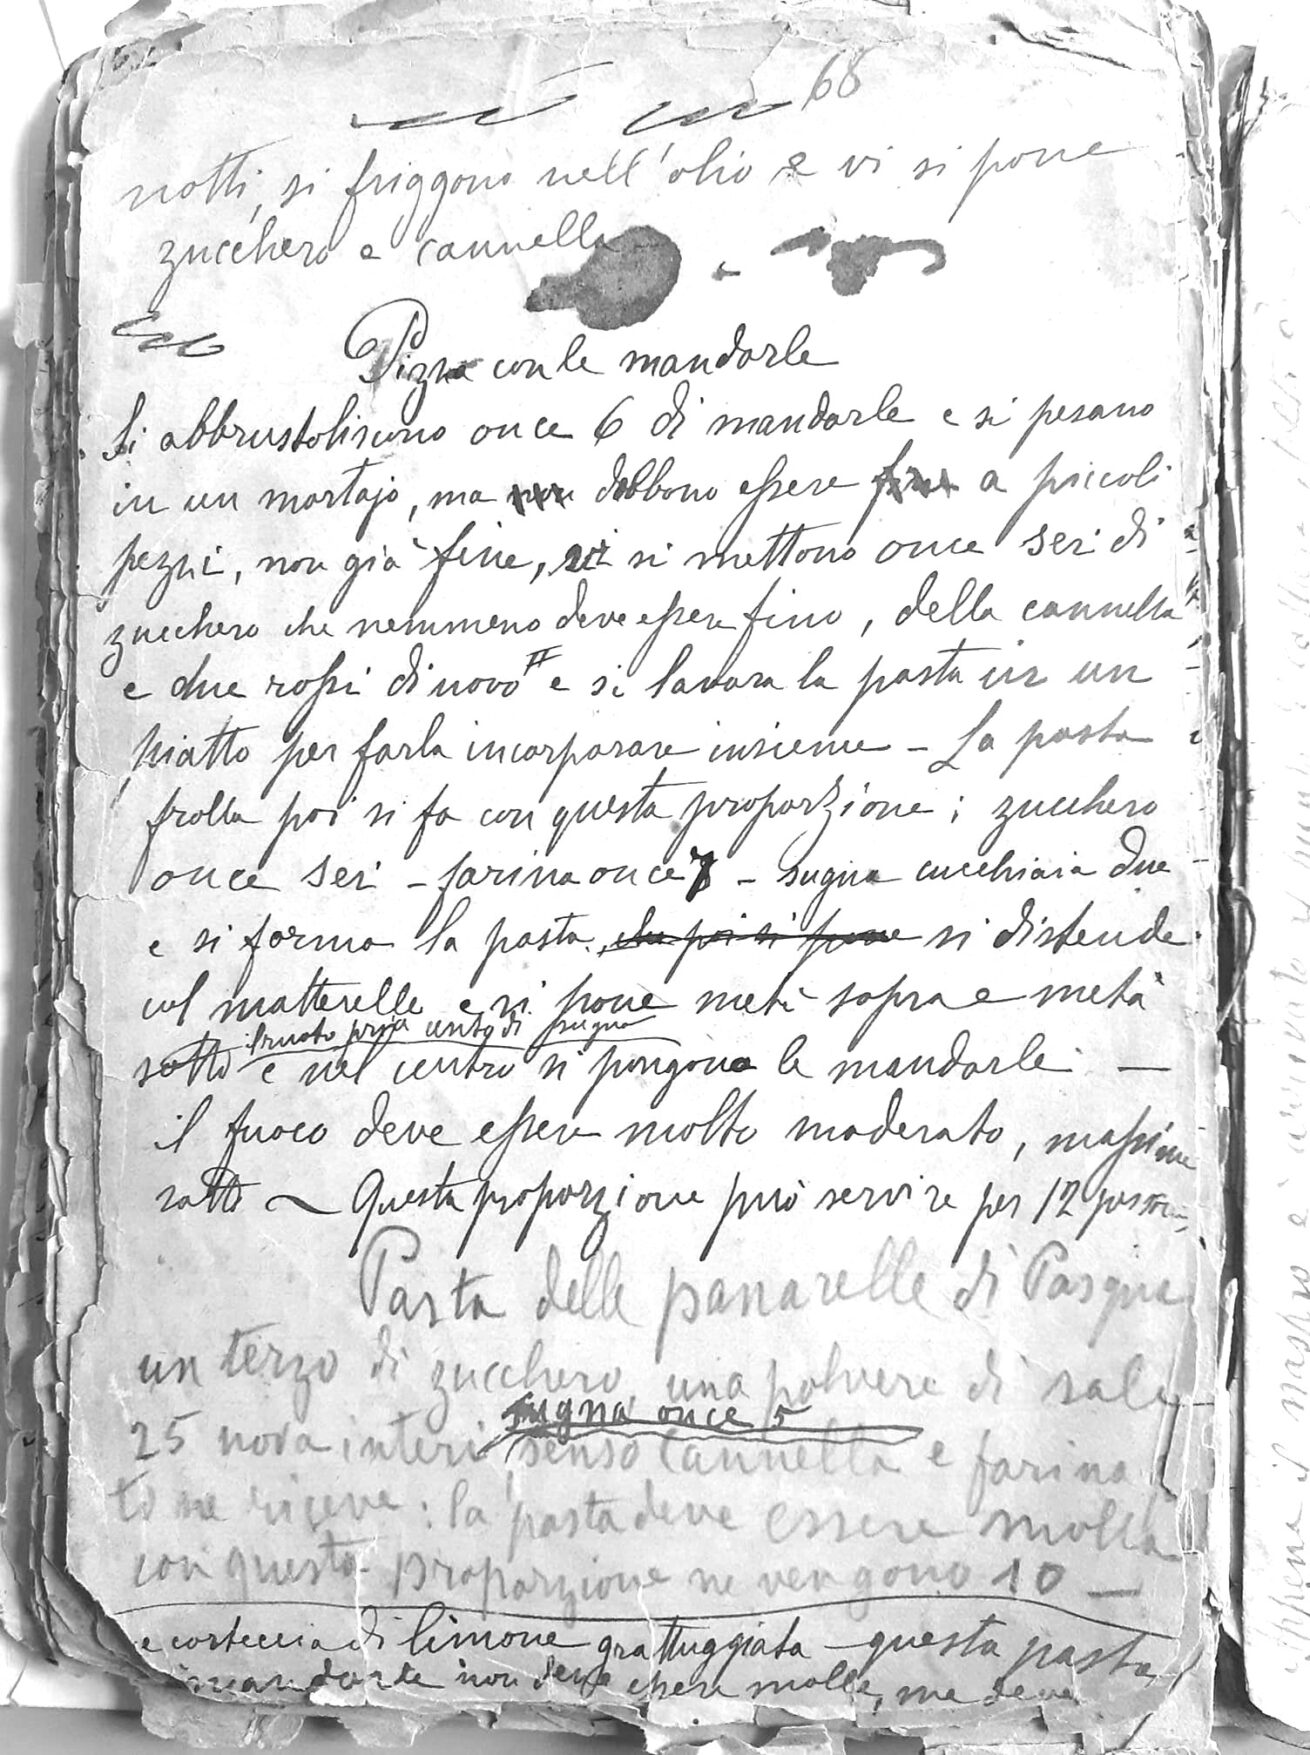 68
notti, si friggono nell'olio e vi si pone
zucchero e cannella
Pizza con le mandorle
Si abbrustoliscono once 6 di mandorle e si pesano
in un mortajo, ma non debbono essere fine a piccoli
pezzi, non già fine, vi si mettono once sei di
zucchero che nemmeno deve essere fino, della cannella
e due rossi di uovo # e si lavora la pasta in un
piatto per farla incorporare insieme – La pasta
frolla poi si fa con questa proporzione: zucchero
once sei – farina once 7 – sugna cucchiaia due
e si forma la pasta, che poi si pone si distende
col matterello e si pone metà sopra e metà
il ruoto pria unto di sugna
sotto e nel centro si pongono le mandorle –
il fuoco deve essere molto moderato, massime
sotto ~ Questa proporzione può servire per 12 persone
Pasta delle panarelle di Pasqua
un terzo di zucchero, una polvere di sale
sugna once 5
25 uova interi senso cannella e farina
to ne riceve: la pasta deve essere molla
con questa proporzione ne vengono 10 –
e corteccia di limone grattuggiata – questa pasta
mandorle non deve essere molle, ma deve